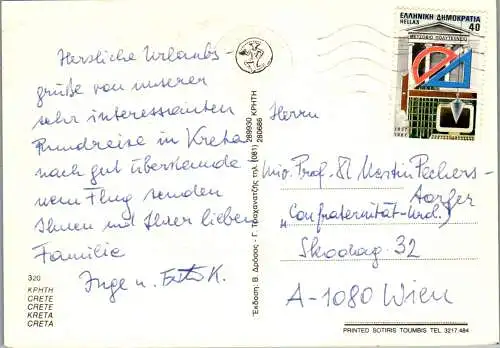 Herzliche Urlaubs-
grüße von unserer
sehr interessanten
Rundreise in Kreta
nach gut überstande
nem Flug senden
Ihnen und Ihrer lieben
Familie
Inge u. K.
320
ΚΡΗΤΗ
CRETE
CRETE
KRETA
CRETA
Έκδοση: Β. Δρόσος - Γ. Τραχανατζής τηλ. (081) 289930 280686 ΚΡΗΤΗ
ΕΛΛΗΝΙΚΗ ΔΗΜΟΚΡΑΤΙΑ
HELLAS 40
ΜΕΤΣΟΒΙΟ ΠΟΛΥΤΕΧΝΕΙΟ
Herrn
Univ. Prof. Martin
"Confraternität-
Skodag. 32
A-1080 Wien
PRINTED SOTIRIS TOUMBIS TEL 3217 484